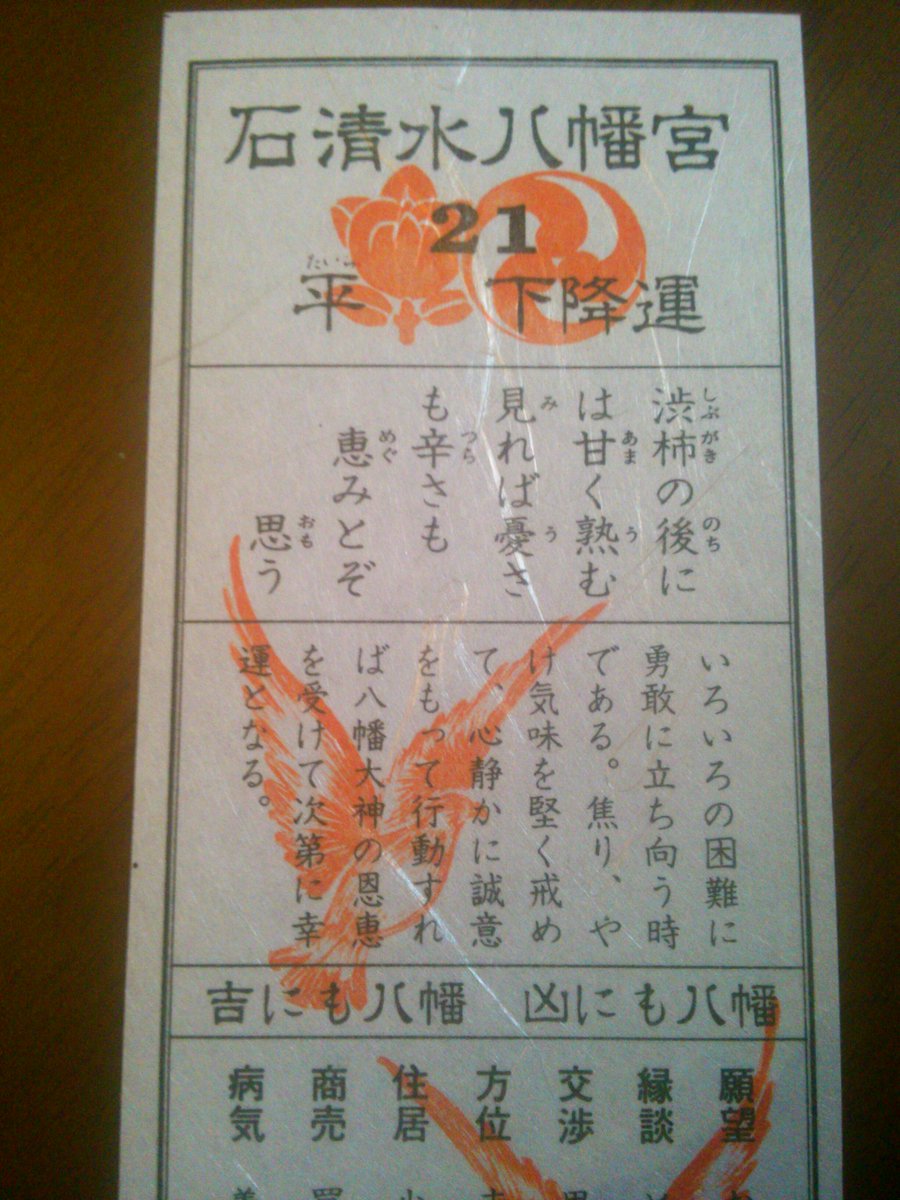 石清水八幡宮
21
平 下降運
渋柿の後に
は甘く熟む
見れば憂さ
も辛さも
恵みとぞ
思う
いろいろの困難に
勇敢に立ち向う時
である。焦り、や
け気味を堅く戒め
て、心静かに誠意
をもって行動すれ
ば八幡大神の恩恵
を受けて次第に幸
運となる。
凶にも八幡 吉にも八幡
願望
縁談
交渉
方位
住居
商売
病気